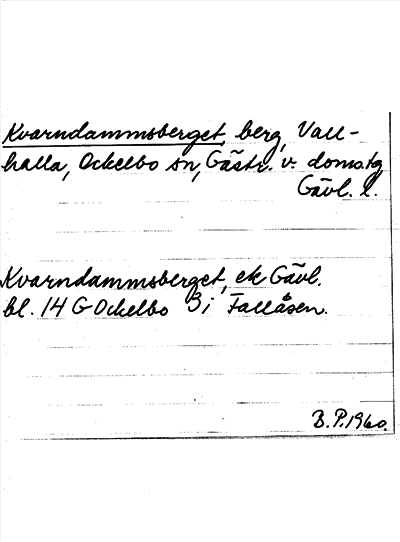 Kvarndammsberget, berg, Vall-
halla, Ockelbo sn, Gästr. v. doms.tg
Gävl. l.
Kvarndammsberget, ek Gävl.
bl. 14 G Ockelbo 3 i Fallåsen.
B.P. 1960.